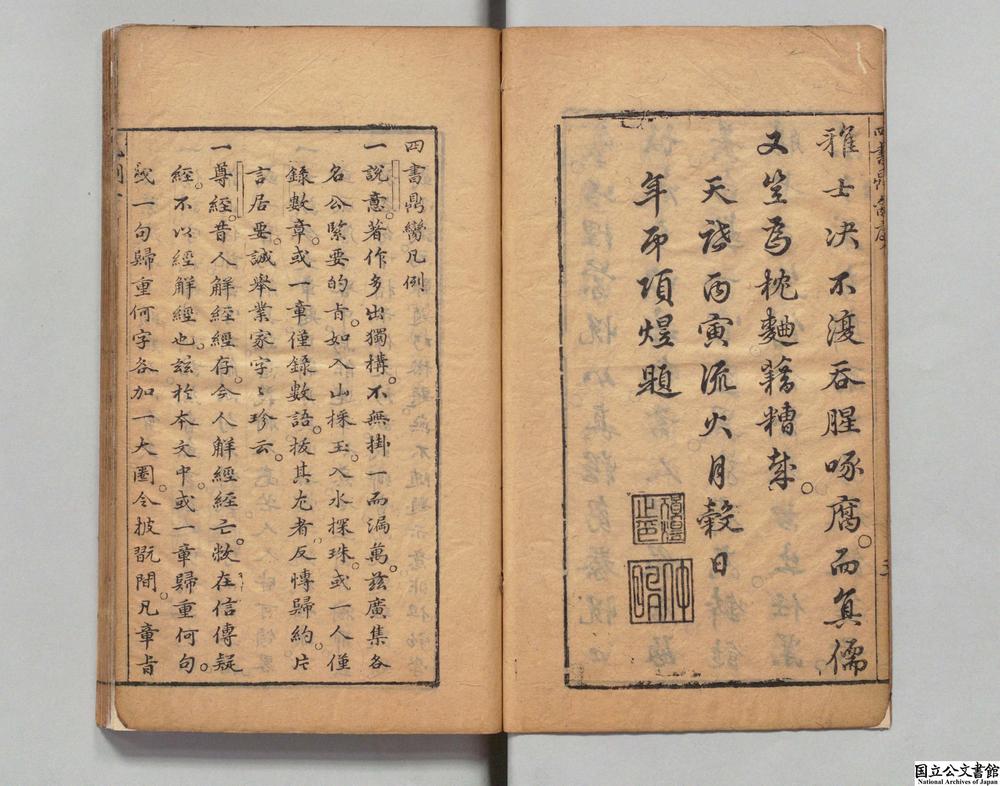 雅士决不復吞腥啄腐而真儒
又豈爲枕麯藉糟哉
天啓丙寅流火月穀日
年弟項煜題
項煜之印
四書鼎臠凡例
一說意著作多出獨構不無掛一而漏萬茲廣集各
名公緊要的旨如入山採玉入水探珠或一人僅
錄數章或一章僅錄數語拔其尤者反博歸約片
言居要誠舉業家字〻珍云
一尊經昔人解經經存今人解經經亡敝在信傳疑
經不以經解經也茲於本文中或一章歸重何句
或一句歸重何字各加一大圈令披翫間凡章旨
国立公文書館
National Archives of Japan